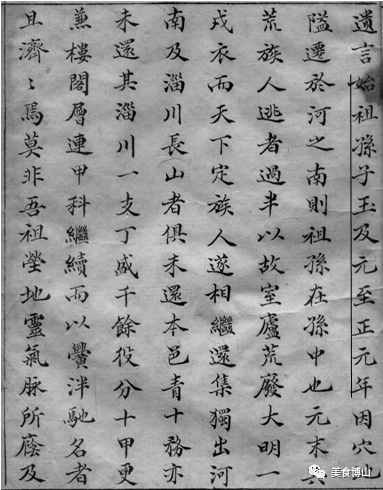 遺言始祖孫子玉及元至正元年因穴
隘遷於河之南則祖孫在孫中也元末
荒族人逃者過半以故室廬荒廢大明一
戎衣而天下定族人遂相繼還集獨出河
南及淄川長山者俱未還本邑青十務亦
未還其淄川一支丁盛千餘役分十甲更
兼樓閣層連甲科繼續而以黌泮馳名者
且濟〻焉莫非吾祖塋地靈氣脉所廕及
美食博山